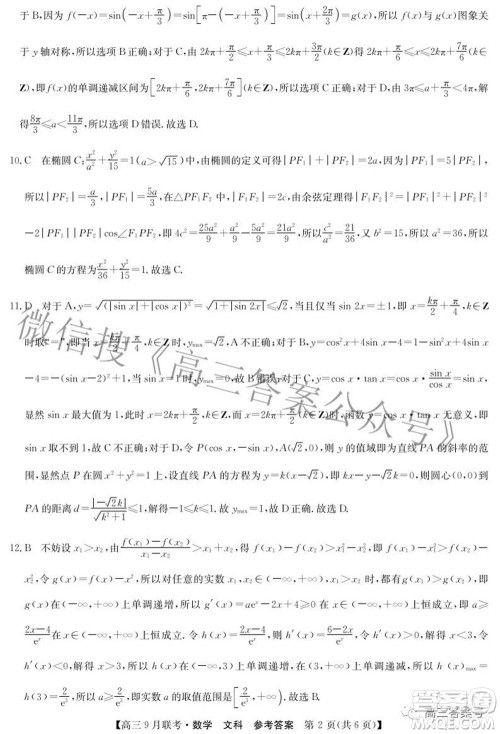 于B,因为 f(−x)=sin(−x+π/3)=sin[π−(−x+π/3)]=sin(x+2π/3)=g(x),所以 f(x)与 g(x)图象关
于 y 轴对称,所以选项 B 正确;对于 C,由 2kπ+π/2≤x+π/3≤2kπ+3π/2(k∈Z),得 2kπ+π/6≤x≤2kπ+7π/6(k∈
Z),即 f(x)的单调递减区间为[2kπ+π/6,2kπ+7π/6](k∈Z),所以选项 C 正确;对于 D,由 3π≤a+π/3<4π,解
得8π/3≤a<11π/3,所以选项 D 错误.故选 D.
10.C 在椭圆 C:x²/a²+y²/15=1(a>√15)中,由椭圆的定义可得|PF₁|+|PF₂|=2a,因为|PF₁|=5|PF₂|,
所以|PF₂|=a/3,|PF₁|=5a/3,在△PF₁F₂中,|F₁F₂|=2c,由余弦定理得|F₁F₂|²=|PF₁|²+|PF₂|²
−2|PF₁||PF₂|cos∠F₁PF₂,即 4c²=25a²/9+a²/9−5a²/9=21a²/9,所以c²/a²=21/36,又 b²=15,所以 a²=36,所以
椭圆 C 的方程为x²/36+y²/15=1.故选 C.
11.D 对于 A,y=√(|sin x|+|cos x|)²=√1+|sin 2x|≤√2,当且仅当 sin 2x=±1,即 x=kπ/2+π/4,k∈Z
时取"=",即当 x=kπ/2+π/4,k∈Z 时,yₘₐₓ=√2,A 不正确;对于 B,y=cos²x+4sin x−4=−sin²x+4sin x
−4−1=−(sin x−2)²,显然sin x最大值为1,此时,yₘₐₓ=−1,故 B 错误;对于 C,y=cos x·tan x=cos x·sin x/cos x=sin x,
显然 sin x 最大值为 1,此时,x=2kπ+π/2,k∈Z,而 x=2kπ+π/2(k∈Z)时,函数 y=cos x·tan x 无意义,即
sin x 取不到 1,C 不正确;对于 D,令 P(cos x,sin x),A(√2,0),则 y 的值域即为直线 PA 的斜率的范
围,显然点 P 在圆 x²+y²=1 上,直线 PA 的方程为 y=k(x−√2),即 kx−y−√2k=0,则圆心(0,0)到
PA 的距离 d=|−√2k|/√k²+1≤1,解得−1≤k≤1.故 yₘₐₓ=1,故 D 正确.故选 D.
12.B 不妨设 x₁>x₂,由f(x₁)−f(x₂)/x₁−x₂>x₁+x₂,得 f(x₁)−f(x₂)>x₁²−x₂²,即 f(x₁)−x₁²>f(x₂)−
x₂²,令 g(x)=f(x)−x²,所以对任意的实数 x₁,x₂∈(−∞,+∞),x₁>x₂时,都有 g(x₁)>g(x₂),即
g(x)在(−∞,+∞)上单调递增,所以 g′(x)=aeˣ−2x+4≥0 在 x∈(−∞,+∞)上恒成立,即 a≥
2x−4/eˣ在(−∞,+∞)上恒成立.令 h(x)=2x−4/eˣ,则 h′(x)=6−2x/eˣ,令 h′(x)>0,解得 x<3,令
h′(x)<0,解得 x>3,所以 h(x)在(−∞,3)上单调递增,在(3,+∞)上单调递减,所以 h(x)ₘₐₓ=
h(3)=2/e³,所以 a≥2/e³,即实数 a 的取值范围是[2/e³,+∞).故选 B.
【高三9月联考·数学 文科 参考答案 第2页(共6页)】
微信搜《高三答案公众号》
高三答案号